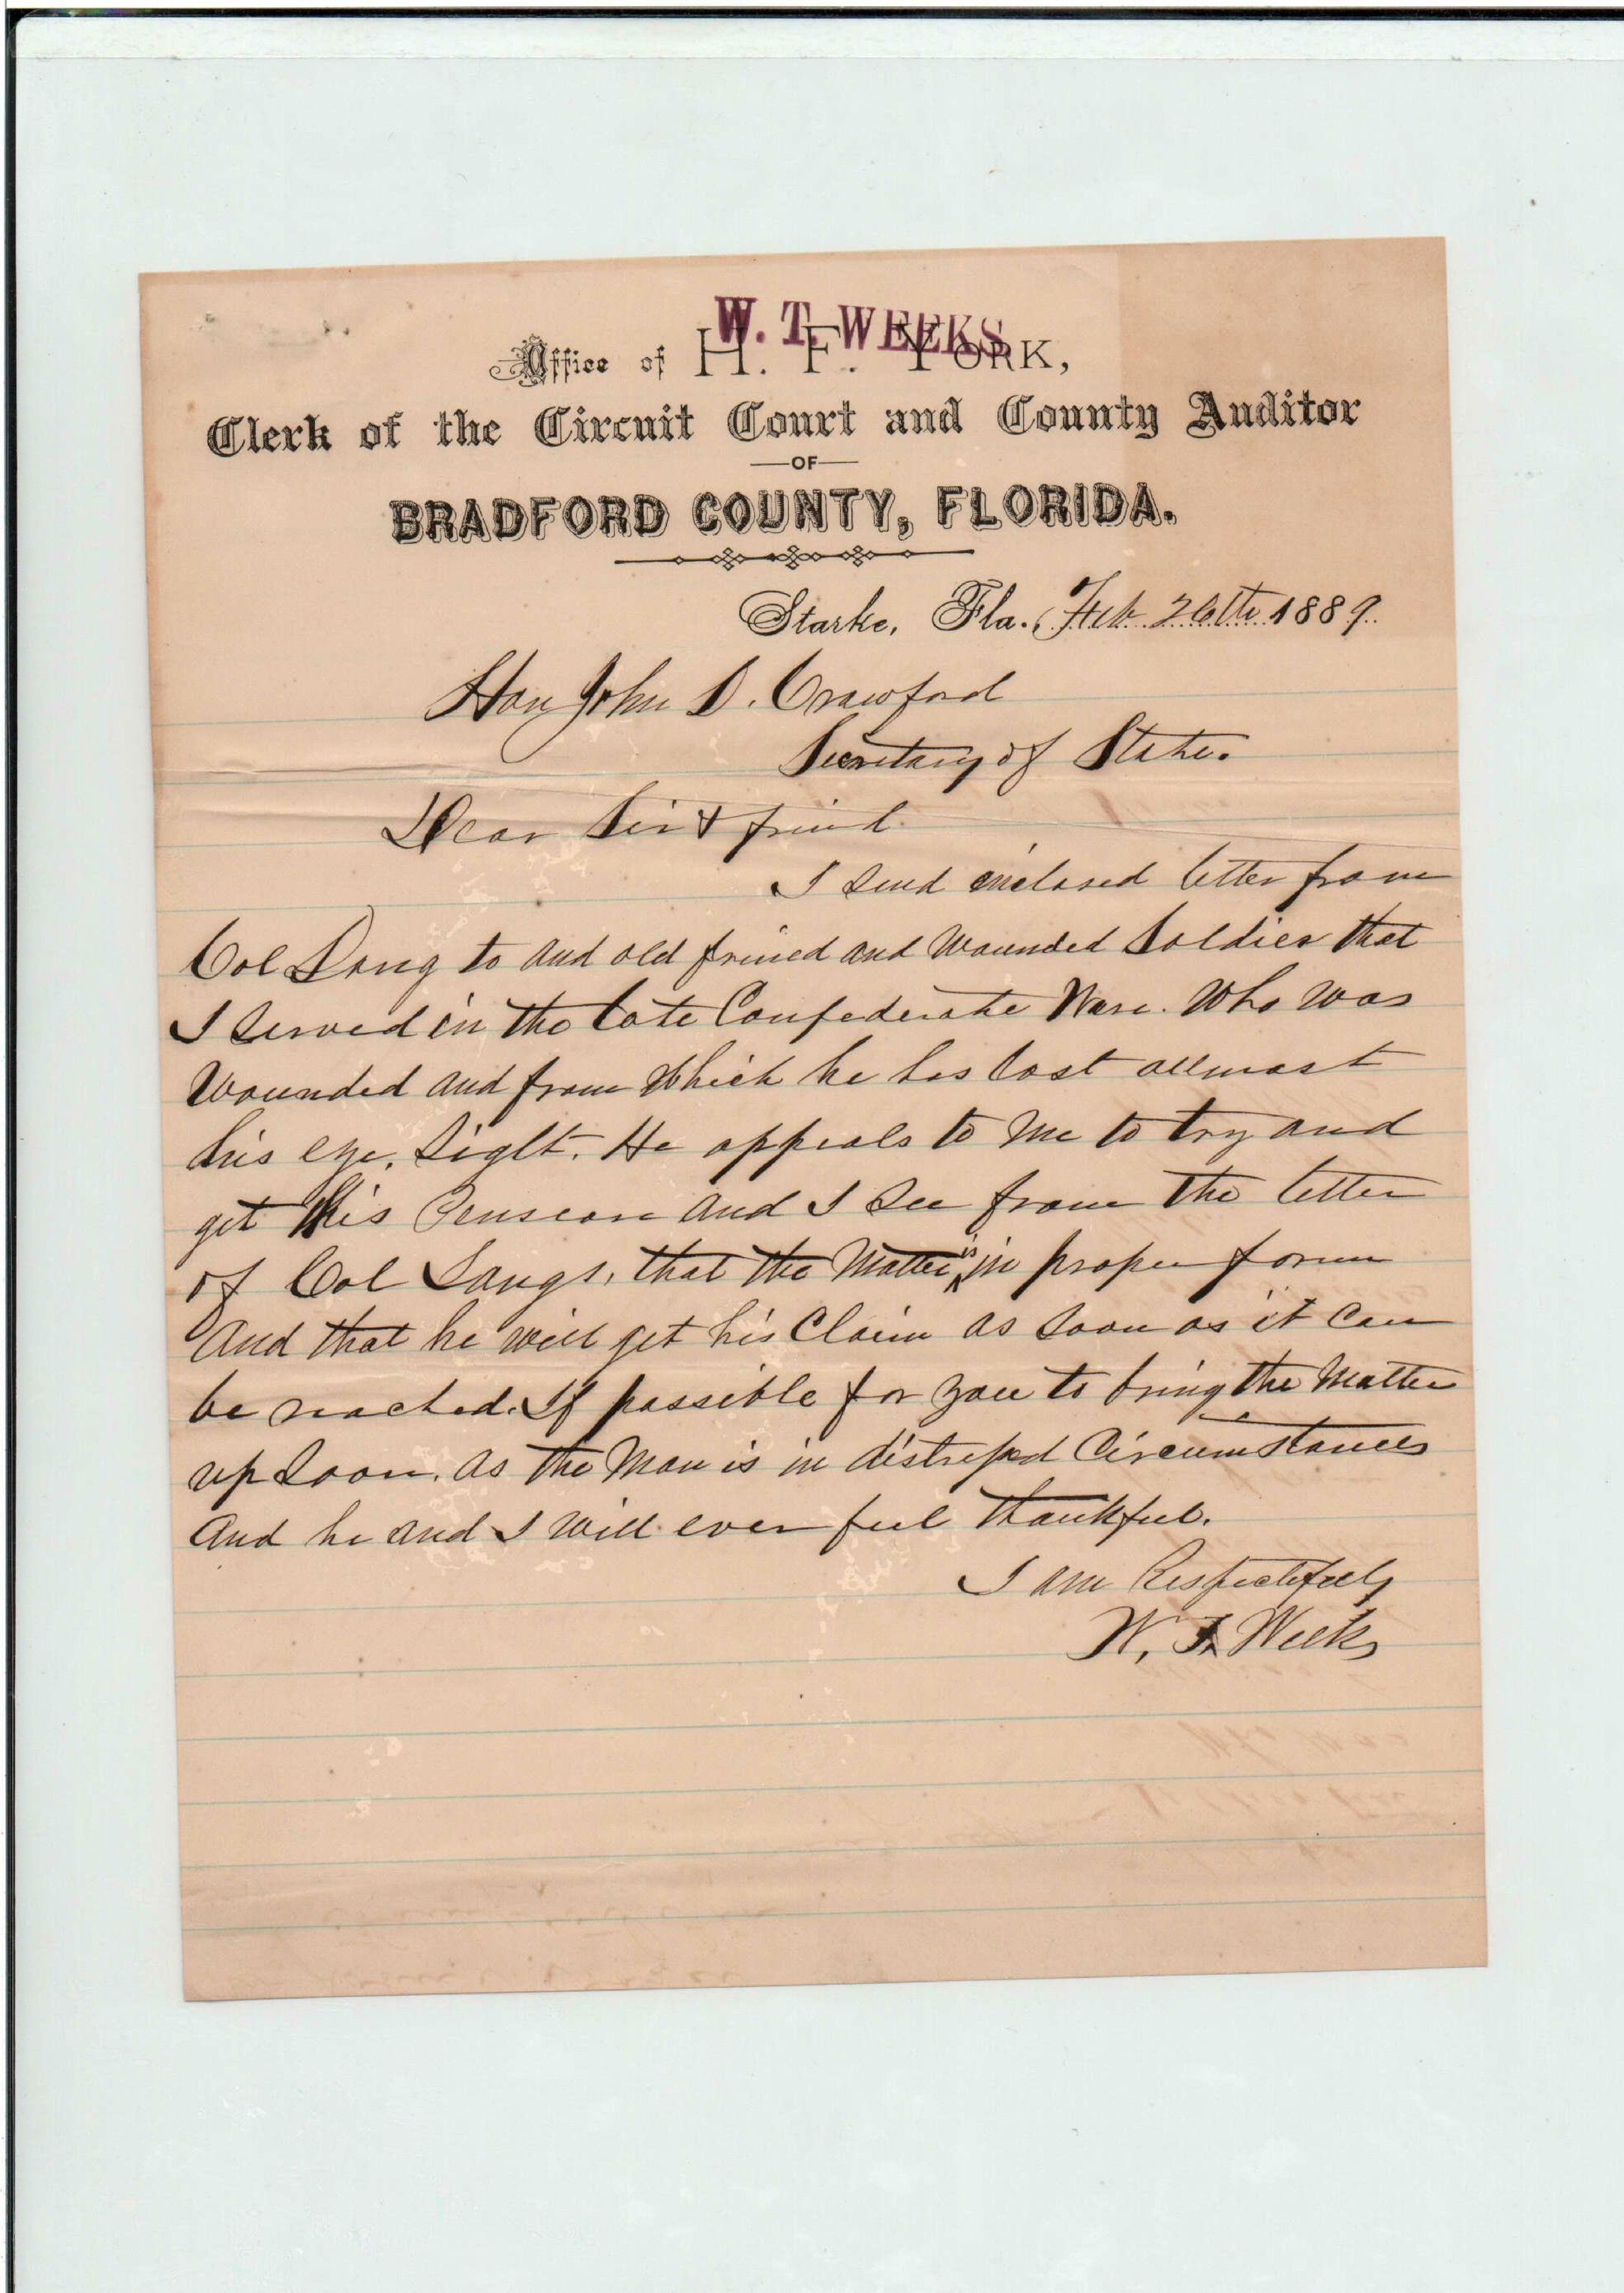 W. T. WEEKS
Office of H. F. YORK,
Clerk of the Circuit Court and County Auditor
OF
BRADFORD COUNTY, FLORIDA.
Starke, Fla., Feb 26th 1889.
Hon John D. Crawford
Secretary of State.
Dear Sir & friend.
I send enclosed letter from
Col Lang to and old frined and wounded Soldier that
I served in the late Confederate Ware. Who was
Wounded and from Which he has lost allmost
his eye, Siglt. He appeals to Me to try and
get this Pension and I See from the letter
of Col Langs, that the Matter is in proper form
And that he will get his Claim as Soon as it can
be reached. If possible for you to bring the Matter
up Soon. as the Man is in distressed Circumstances
And he and I will ever feel thankful.
I am Respectfully
W. T. Weeks